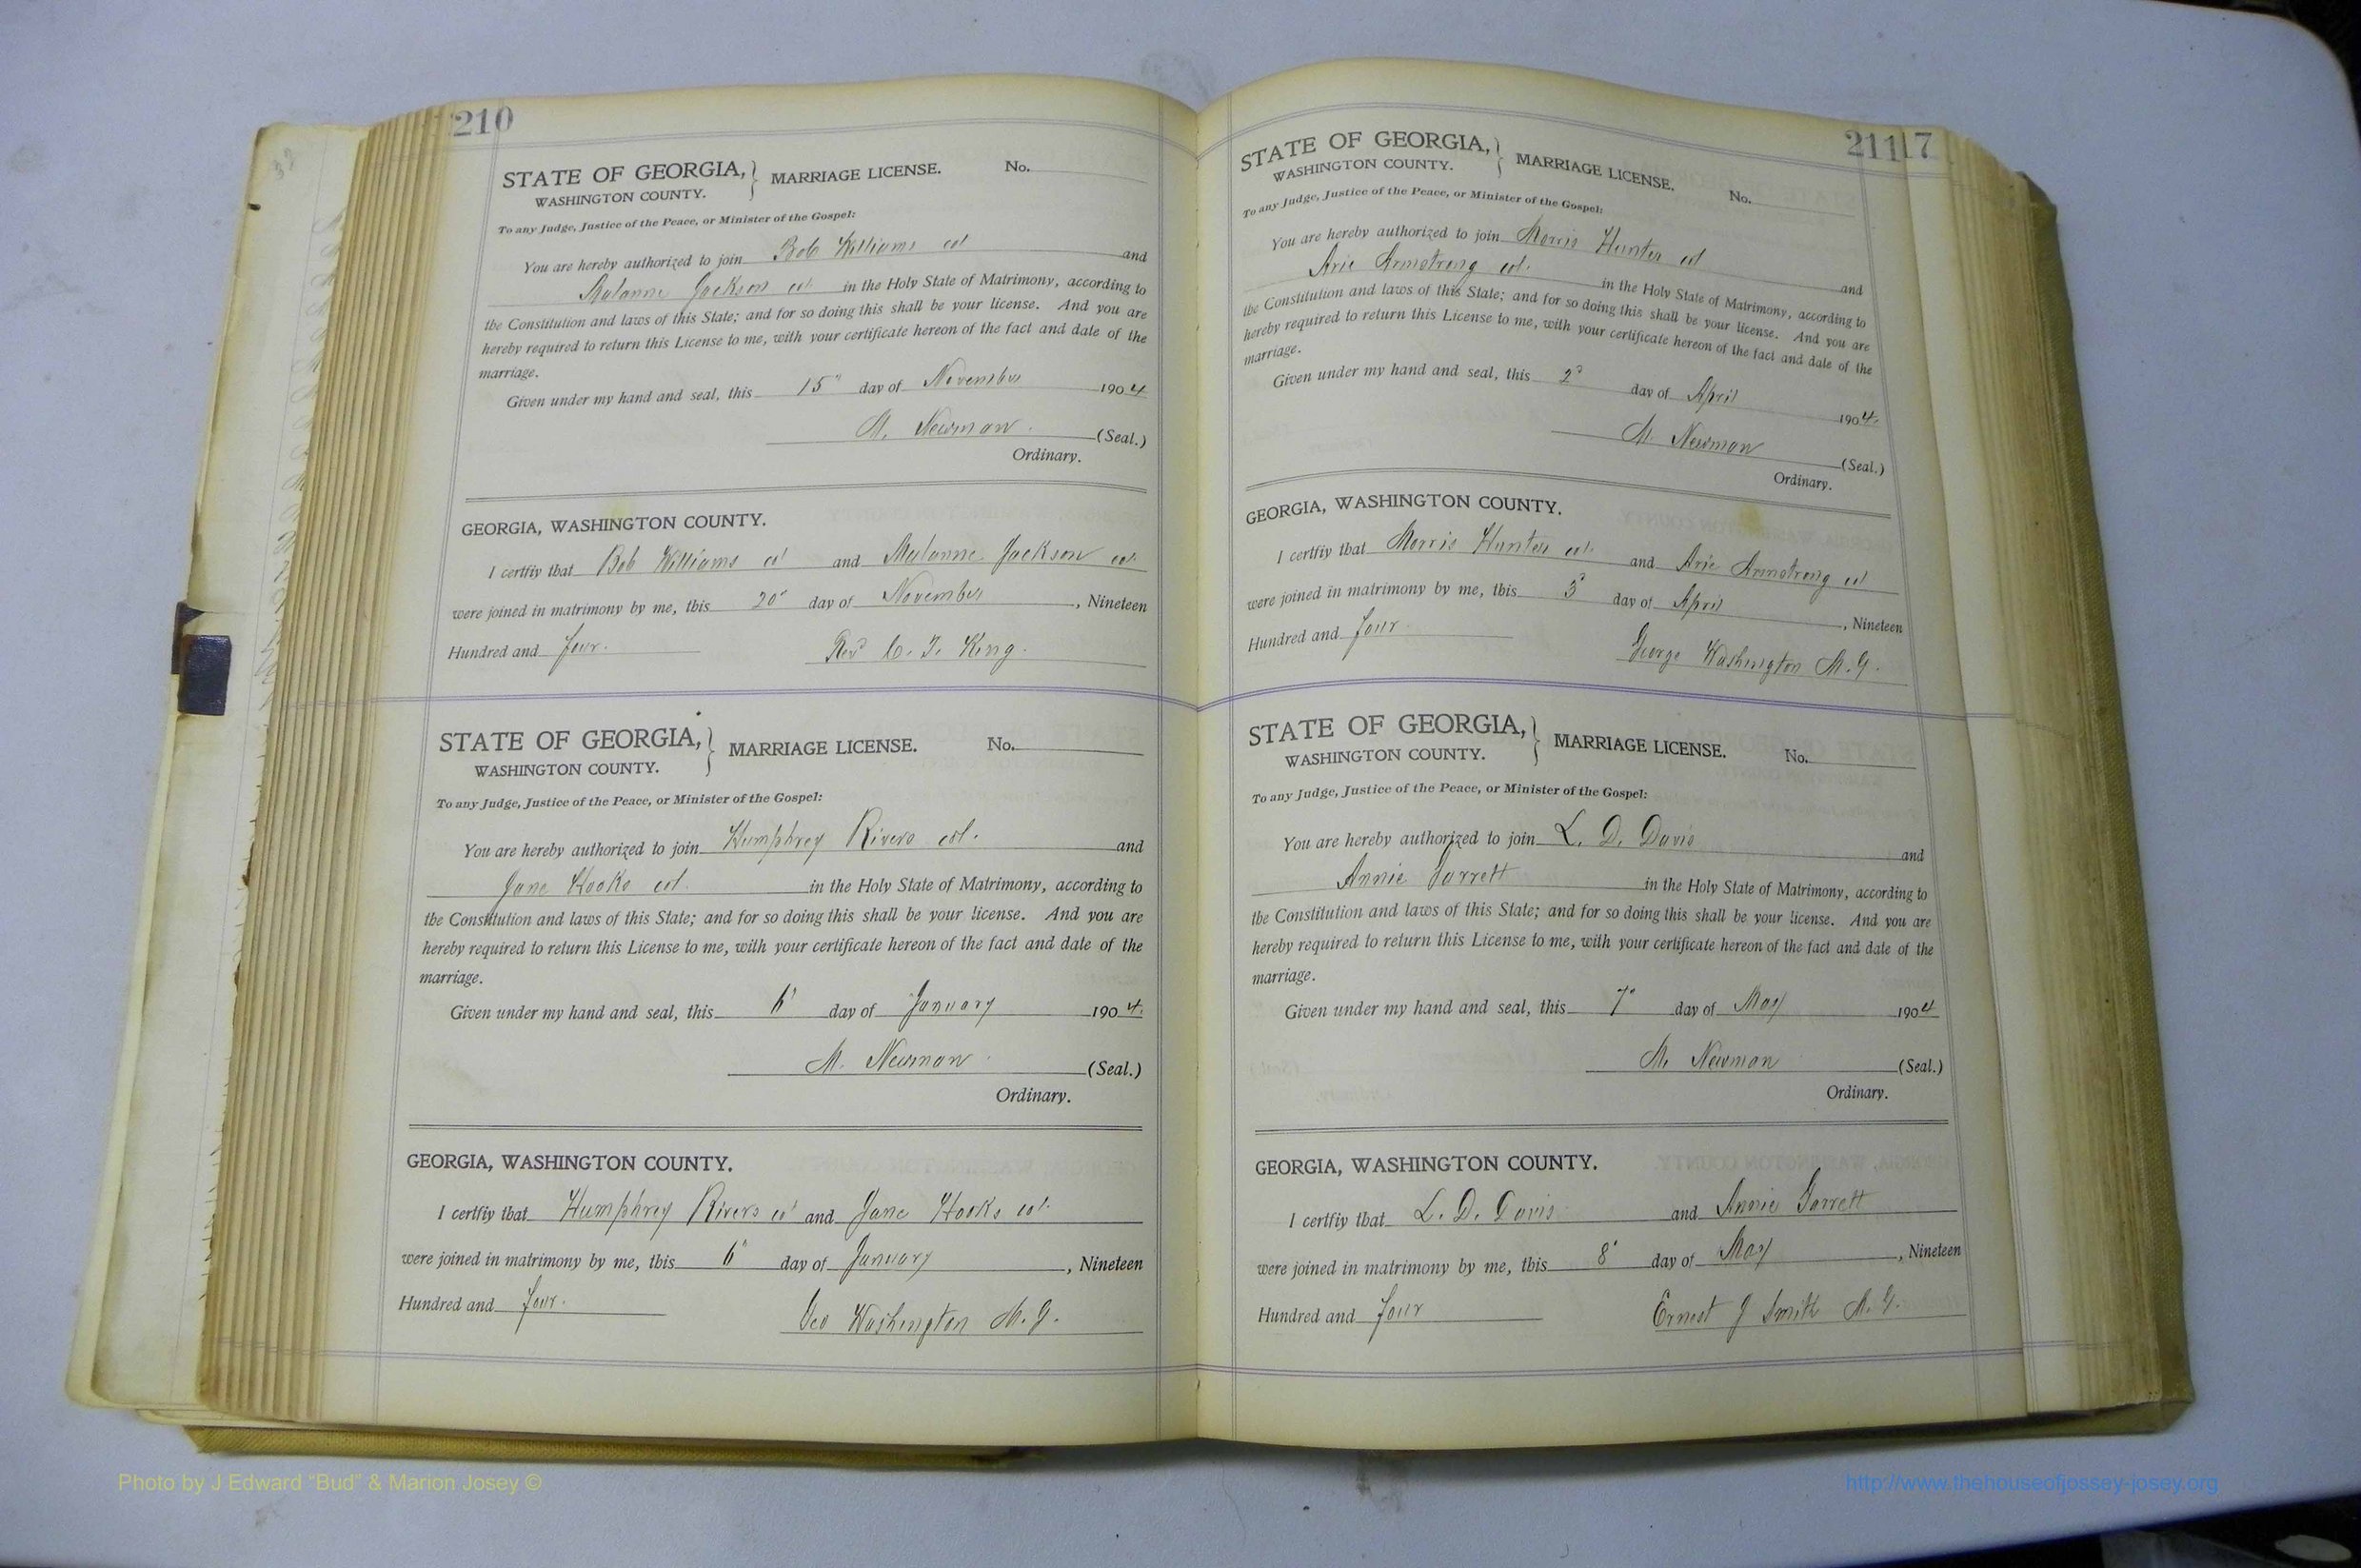 210
STATE OF GEORGIA, } MARRIAGE LICENSE. No.
WASHINGTON COUNTY.
To any Judge, Justice of the Peace, or Minister of the Gospel:
You are hereby authorized to join Bob Williams col and
Mulanne Jackson col in the Holy State of Matrimony, according to
the Constitution and laws of this State; and for so doing this shall be your license. And you are
hereby required to return this License to me, with your certificate hereon of the fact and date of the
marriage.
Given under my hand and seal, this 15" day of November 1904
M. Newman. (Seal.)
Ordinary.
GEORGIA, WASHINGTON COUNTY.
I certfiy that Bob Williams col and Mulanne Jackson col
were joined in matrimony by me, this 20" day of November, Nineteen
Hundred and four. Revd C. T. King.
STATE OF GEORGIA, } MARRIAGE LICENSE. No.
WASHINGTON COUNTY.
To any Judge, Justice of the Peace, or Minister of the Gospel:
You are hereby authorized to join Humphrey Rivers col. and
Jane Hooks col. in the Holy State of Matrimony, according to
the Constitution and laws of this State; and for so doing this shall be your license. And you are
hereby required to return this License to me, with your certificate hereon of the fact and date of the
marriage.
Given under my hand and seal, this 6" day of January 1904.
M. Newman. (Seal.)
Ordinary.
GEORGIA, WASHINGTON COUNTY.
I certfiy that Humphrey Rivers col and Jane Hooks col.
were joined in matrimony by me, this 6" day of January, Nineteen
Hundred and four. Geo Washington M. G.
211 17
STATE OF GEORGIA, } MARRIAGE LICENSE. No.
WASHINGTON COUNTY.
To any Judge, Justice of the Peace, or Minister of the Gospel:
You are hereby authorized to join Morris Hunter col and
Arie Armstrong col. in the Holy State of Matrimony, according to
the Constitution and laws of this State; and for so doing this shall be your license. And you are
hereby required to return this License to me, with your certificate hereon of the fact and date of the
marriage.
Given under my hand and seal, this 2" day of April 1904.
M. Newman (Seal.)
Ordinary.
GEORGIA, WASHINGTON COUNTY.
I certfiy that Morris Hunter col. and Arie Armstrong col
were joined in matrimony by me, this 3" day of April, Nineteen
Hundred and four. George Washington M. G.
STATE OF GEORGIA, } MARRIAGE LICENSE. No.
WASHINGTON COUNTY.
To any Judge, Justice of the Peace, or Minister of the Gospel:
You are hereby authorized to join L. D. Davis and
Annie Garrett in the Holy State of Matrimony, according to
the Constitution and laws of this State; and for so doing this shall be your license. And you are
hereby required to return this License to me, with your certificate hereon of the fact and date of the
marriage.
Given under my hand and seal, this 7" day of May 1904
M. Newman (Seal.)
Ordinary.
GEORGIA, WASHINGTON COUNTY.
I certfiy that L. D. Davis and Annie Garrett
were joined in matrimony by me, this 8" day of May, Nineteen
Hundred and four Ernest J Smith M. G.
Photo by J Edward "Bud" & Marion Josey ©
http://www.thehouseofjossey-josey.org